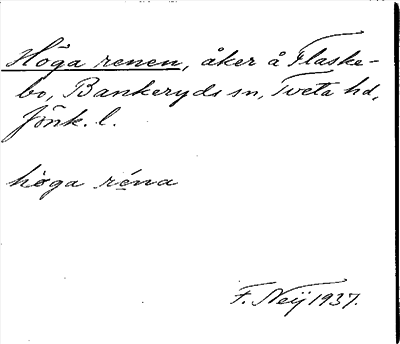 Höga renen, åker å Flaske-
bo, Bankeryds sn, Tveta hd,
Jönk. l.
hö̀ga réna
F. Neij 1937.